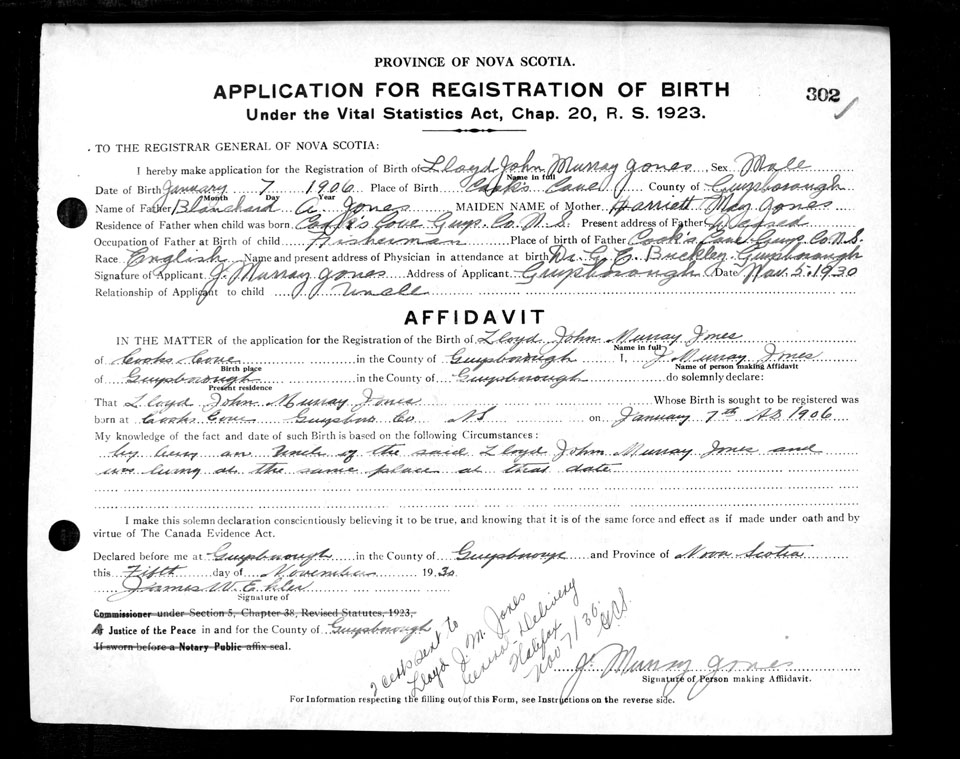 PROVINCE OF NOVA SCOTIA.
APPLICATION FOR REGISTRATION OF BIRTH
302
Under the Vital Statistics Act, Chap. 20, R. S. 1923.
TO THE REGISTRAR GENERAL OF NOVA SCOTIA:
I hereby make application for the Registration of Birth of Lloyd John Murray Jones Sex Male
Name in full
Date of Birth January 7 1906 Place of Birth Cook's Cove County of Guysborough
Month Day Year
Name of Father Blanchard A. Jones MAIDEN NAME of Mother Harriett May Jones
Residence of Father when child was born Cook's Cove Guys. Co. N.S. Present address of Father Deceased
Occupation of Father at Birth of child Fisherman Place of birth of Father Cook's Cove Guys. Co. N.S.
Race English Name and present address of Physician in attendance at birth Dr. G. E. Buckley Guysborough
Signature of Applicant J. Murray Jones Address of Applicant Guysborough Date Nov. 5. 1930
Relationship of Applicant to child Uncle
AFFIDAVIT
IN THE MATTER of the application for the Registration of the Birth of Lloyd John Murray Jones
Name in full
of Cooks Cove in the County of Guysborough I, J. Murray Jones
Birth place Name of person making Affidavit
of Guysborough in the County of Guysborough do solemnly declare:
Present residence
That Lloyd John Murray Jones Whose Birth is sought to be registered was
born at Cooks Cove Guysboro Co NS on January 7th AD 1906
My knowledge of the fact and date of such Birth is based on the following Circumstances:
by being an Uncle of the said Lloyd John Murray Jones and
was living at the same place at that date
I make this solemn declaration conscientiously believing it to be true, and knowing that it is of the same force and effect as if made under oath and by
virtue of The Canada Evidence Act.
Declared before me at Guysborough in the County of Guysborough and Province of Nova Scotia
this Fifth day of November 1930
James W. E
Signature of
Commissioner under Section 5, Chapter 38, Revised Statutes, 1923,
A Justice of the Peace in and for the County of Guysborough
If sworn before a Notary Public affix seal.
2 certs sent to
Lloyd J. M. Jones
General Delivery
Halifax
Nov 7/30.
J. Murray Jones
Signature of Person making Affidavit.
For Information respecting the filling out of this Form, see Instructions on the reverse side.